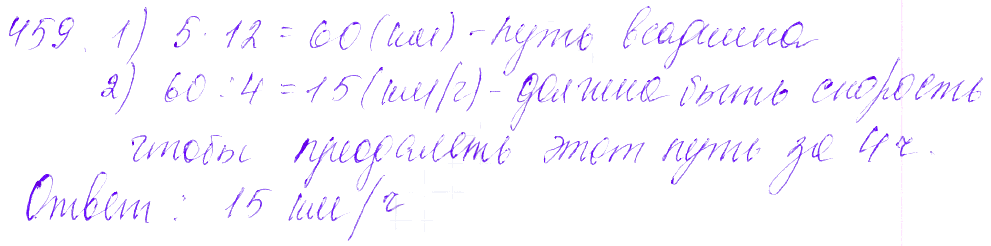 459. 1) 5 · 12 = 60 (км) - путь всадника
2) 60 : 4 = 15 (км/ч) - должна быть скорость
чтобы преодалеть этот путь за 4 ч.
Ответ: 15 км/ч